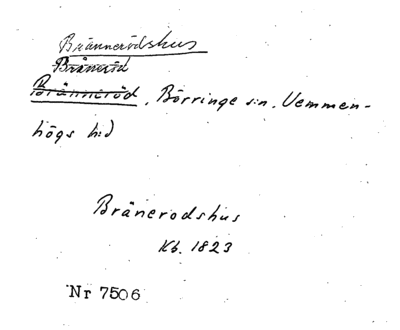 Brännerödshus
Bräneröd
Bränneröd, Börringe sn, Vemmen-
högs hd
Bränerodshus
Kb. 1823
Nr 7506